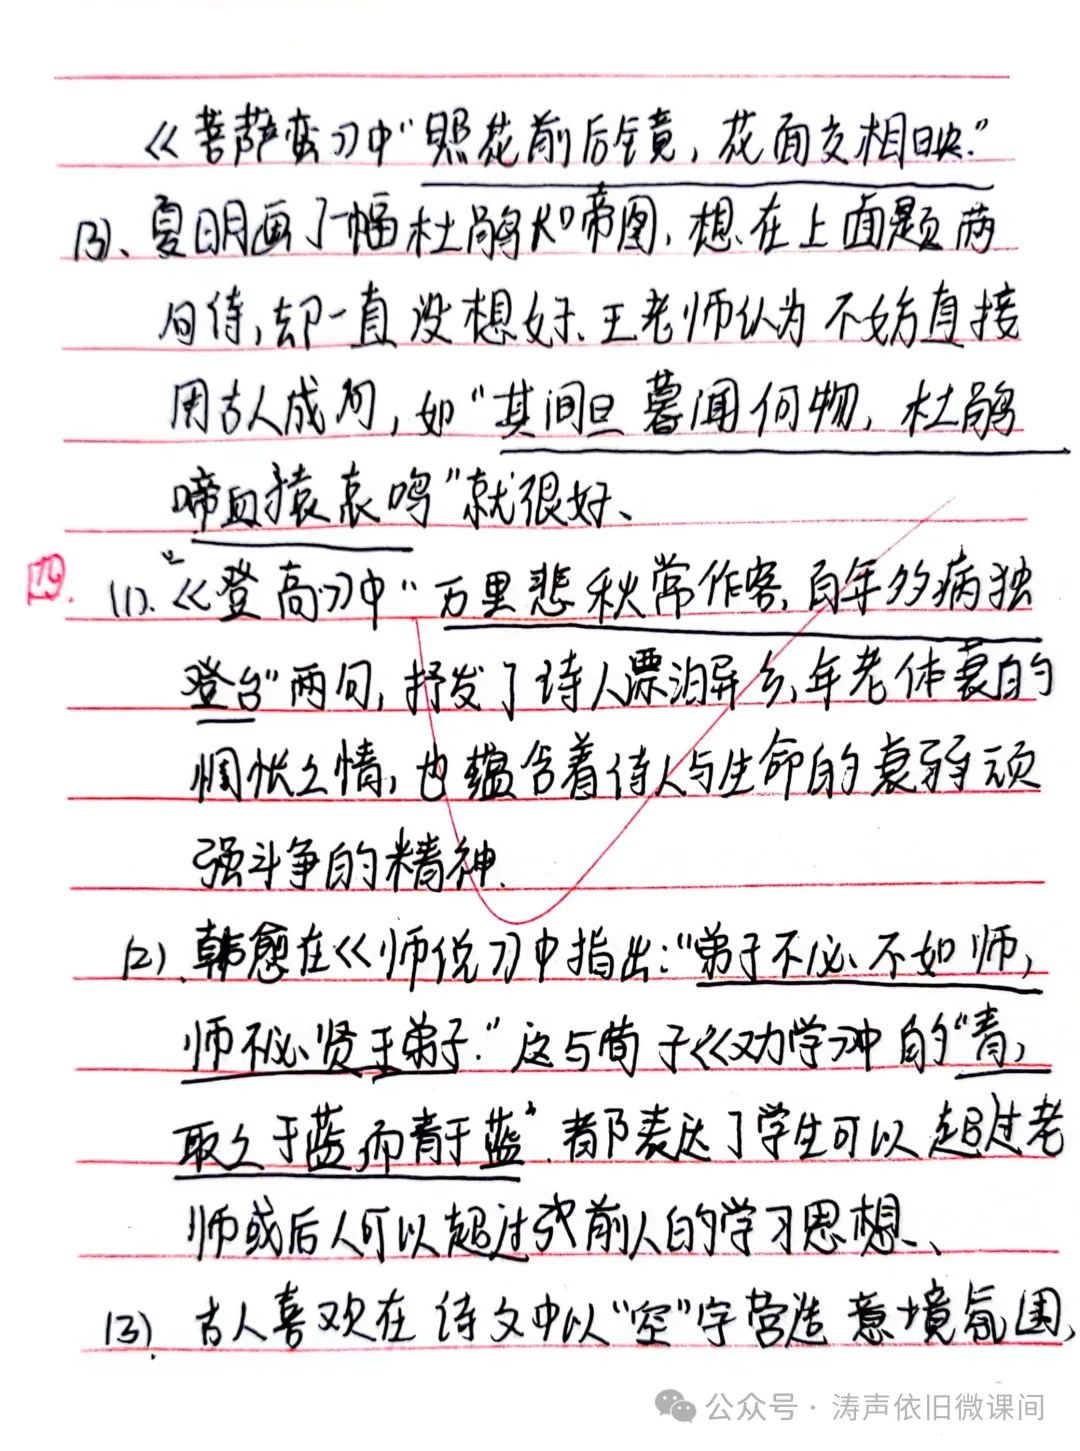 《菩萨蛮》中“照花前后镜，花面交相映.”
(3)、夏明画了一幅杜鹃啼图，想在上面题两
句诗，却一直没想好、王老师认为不妨直接
用古人成句，如“其间旦暮闻何物，杜鹃
啼血猿哀鸣”就很好、
19. (1).《登高》中“万里悲秋常作客，百年多病独
登台”两句，抒发了诗人漂泊异乡、年老体衰的
惆怅之情，也蕴含着诗人与生命的衰弱顽
强斗争的精神.
(2)、韩愈在《师说》中指出：“弟子不必不如师，
师不必贤于弟子.”这与荀子《劝学》中的“青，
取之于蓝，而青于蓝”都表达了学生可以超过老
师或后人可以超过前人的学习思想、
(3)、古人喜欢在诗文中以“空”字营造意境氛围，
公众号·涛声依旧微课间